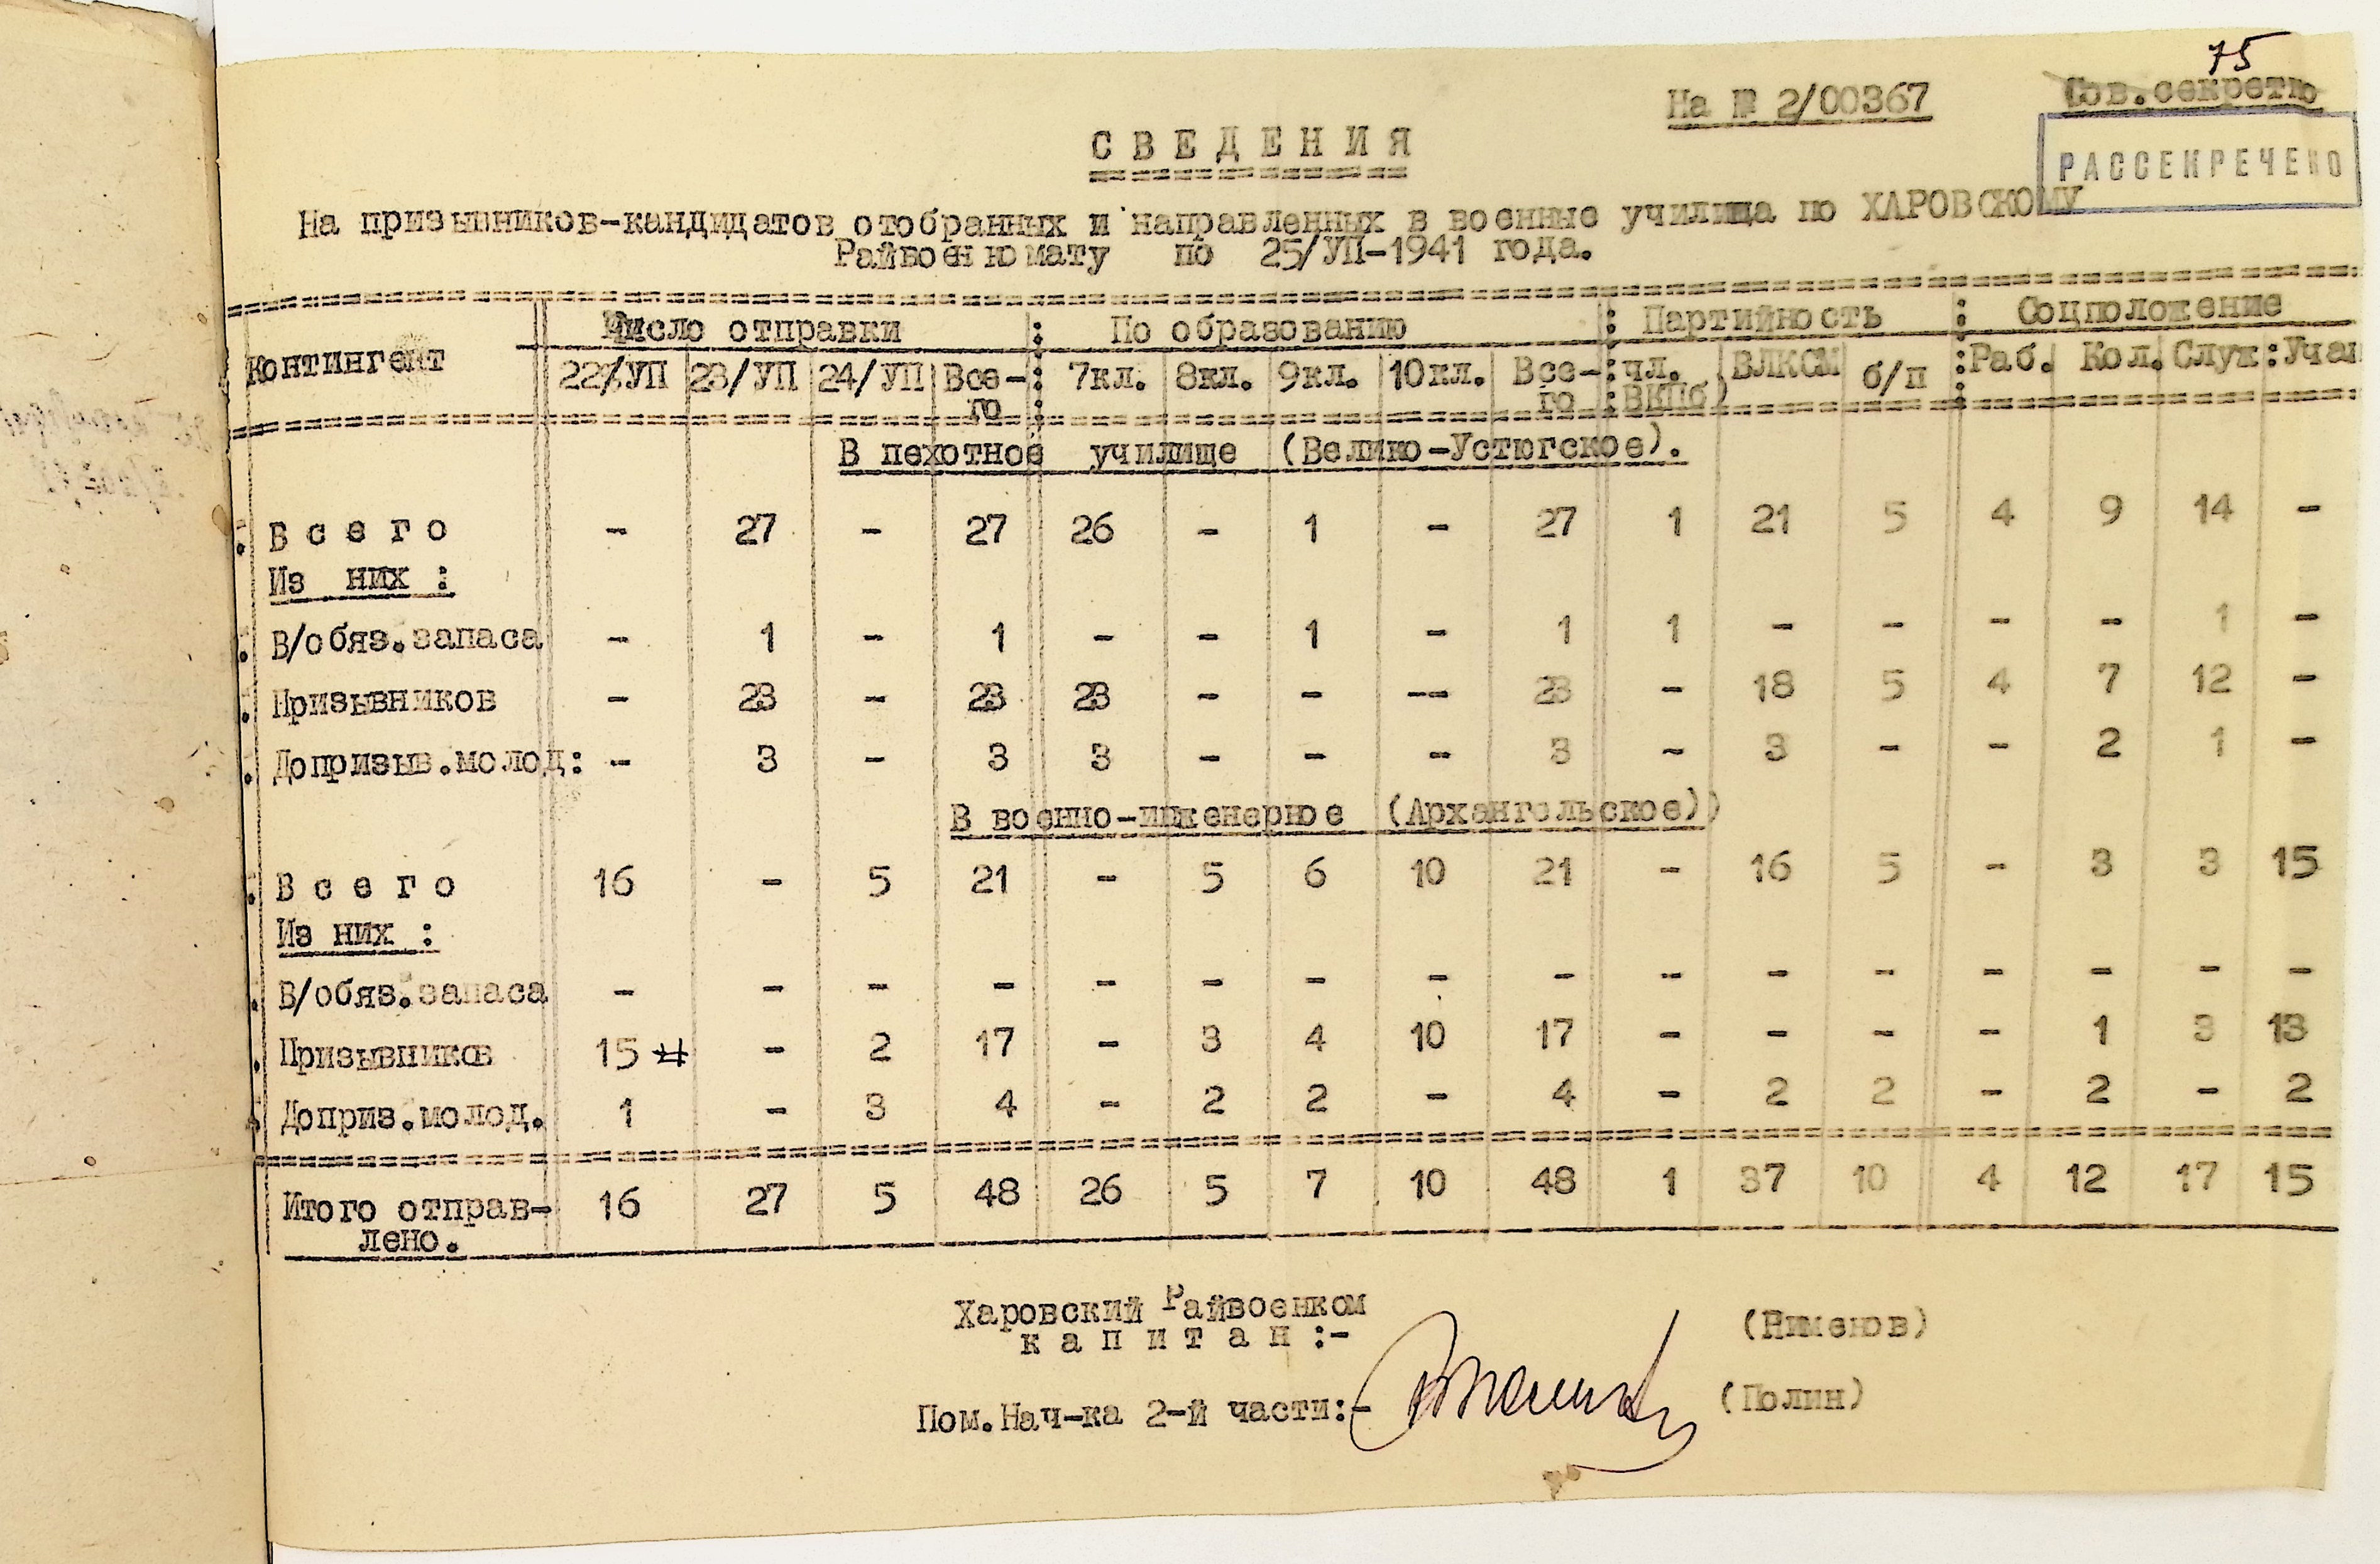 75
На № 2/00367 Сов.секретно
РАССЕКРЕЧЕНО
С В Е Д Е Н И Я
На призывников-кандидатов отобранных и направленных в военные училища по ХАРОВСКОМУ
Райвоенкомату по 25/УП-1941 года.
Число отправки : По образованию : Партийность : Соцположение
контингент 22/УП 23/УП 24/УП Все- : 7кл. 8кл. 9кл. 10кл. Все- : чл. ВЛКСМ б/п : Раб. Кол. Служ : Учащ
го : го : ВКПб)
В пехотное училище (Велико-Устюгское).
В с е г о - 27 - 27 26 - 1 - 27 1 21 5 4 9 14 -
Из них :
В/обяз.запаса - 1 - 1 - - 1 - 1 1 - - - - 1 -
Призывников - 23 - 23 23 - - -- 23 - 18 5 4 7 12 -
Допризыв.молод: - 3 - 3 3 - - - 3 - 3 - - 2 1 -
В военно-инженерное (Архангельское))
В с е г о 16 - 5 21 - 5 6 10 21 - 16 5 - 3 3 15
Из них :
В/обяз.запаса - - - - - - - - - - - - - - - -
Призывников 15 - 2 17 - 3 4 10 17 - - - - 1 3 13
Доприз.молод. 1 - 3 4 - 2 2 - 4 - 2 2 - 2 - 2
Итого отправ- 16 27 5 48 26 5 7 10 48 1 37 10 4 12 17 15
лено.
Харовский Райвоенком
к а п и т а н :- 
Пом.Нач-ка 2-й части:- (Полин)